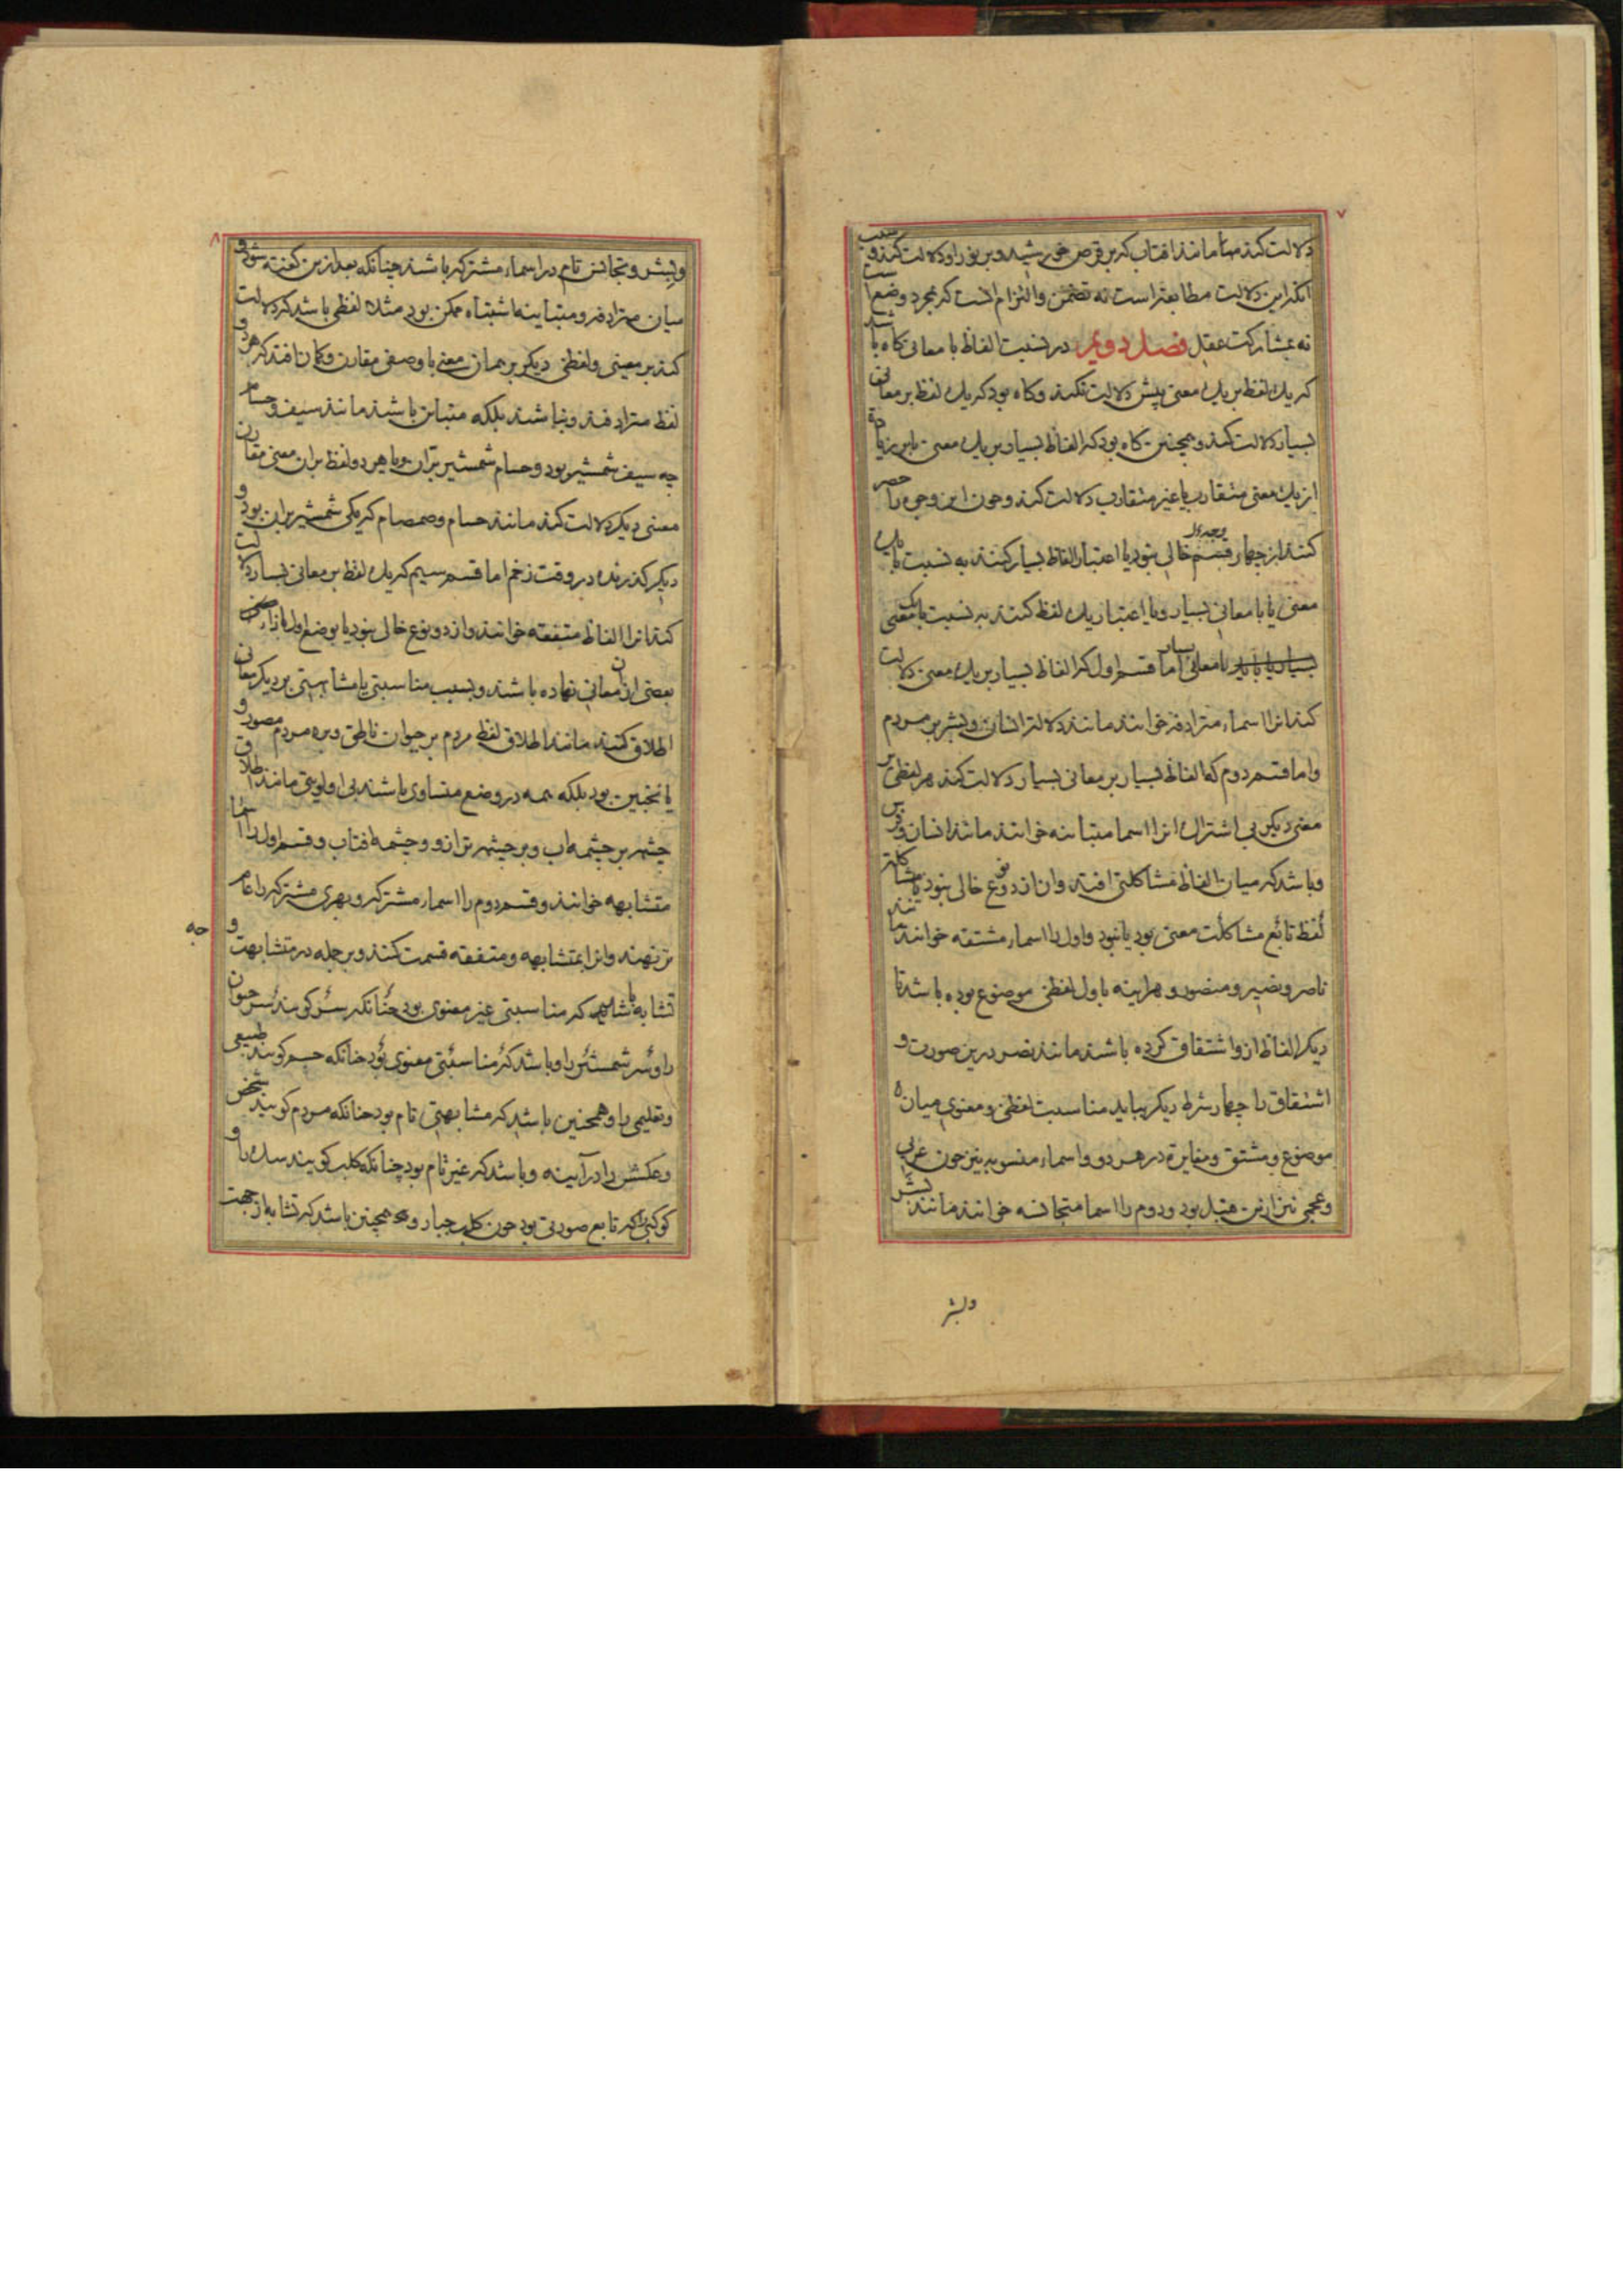 ۷
دلالت کند مانند افتاب که بر قرص خورشید و بر نور او دلالت کند و سبب
انکه این دلالت مطابقه است نه تضمن و التزام انست که بمجرد وضع است
نه بمشارکت عقل فصل دویم در نسبت الفاظ با معانی کاه باشد
که یک لفظ بر یک معنی بیش دلالت نکند و کاه بود که یک لفظ بر معانی
بسیار دلالت کند و همچنین کاه بود که الفاظ بسیار بر یک معنی یا بر زیاده
از یک معنی متقارب یا غیر متقارب دلالت کند و چون این وجوه را حصر
کنند از چهار قسم خالی نبود یا اعتبار الفاظ بسیار کنند به نسبت با یک
معنی یا با معانی بسیار و یا اعتبار یک لفظ کنند به نسبت با یک معنی
یا با معانی بسیار اما قسم اول که الفاظ بسیار بر یک معنی دلالت
کند انرا اسماء مترادفه خوانند مانند دلالت انسان و بشر بر مردم
و اما قسم دوم که الفاظ بسیار بر معانی بسیار دلالت کند هر لفظی بر
معنی دیگر بی اشتراک انرا اسما متباینه خوانند مانند انسان و فرس
و باشد که میان الفاظ مشاکلتی افتد و ان از دو نوع خالی نبود یا مشاکلت
لفظ تابع مشاکلت معنی بود یا نبود و اول را اسماء مشتقه خوانند مانند
ناصر و نصیر و منصور و هراینه باول لفظی موضوع بوده باشد تا
دیگر الفاظ ازو اشتقاق کرده باشند مانند نصر درین صورت و
اشتقاق را چهار شرط دیگر بباید مناسبت لفظی و معنوی میان
موضوع و مشتق و مغایرة در هر دو و اسماء منسوبه نیز چون عربی
و عجمی نیز ازین قبیل بود و دوم را اسما متجانسه خوانند مانند بشر
وبشر
۸
و بشر و تجانس تام در اسماء مشترکه باشد چنانکه بعد ازین کفته شود و
میان مترادفه و متباینه اشتباه ممکن بود مثلا لفظی باشد که دلالت
کند بر معینی و لفظی دیگر بر همان معنی با وصفی مقارن و کمان افتد که هر دو
لفظ مترادفند و نباشند بلکه متباین باشند مانند سیف و حسام
چه سیف شمشیر بود و حسام شمشیر بران و یا هر دو لفظ بران معنی مقارن
معنی دیگر دلالت کند مانند حسام و صمصام که یکی شمشیر بران بود و
دیگر گذرنده در وقت زخم اما قسم سیم که یک لفظ بر معانی بسیار دلالت
کند انرا الفاظ متفقه خوانند و از دو نوع خالی نبود یا بوضع اول بازاء
بعضی ازان معانی نهاده باشند و بسبب مناسبتی یا مشابهتی بر دیگر معانی
اطلاق کنند مانند اطلاق لفظ مردم بر حیوان ناطق و بر مردم مصور و
یا نچنین بود بلکه همه در وضع متساوی باشند بی اولویتی مانند اطلاق
چشمه بر چشمه اب و بر چشمه ترازو و چشمه افتاب و قسم اول را اسما
متشابهه خوانند و قسم دوم را اسماء مشترکه و بهری مشترکه را عام
تر نهند و انرا بمتشابهه و متفقه قسمت کنند و بر جمله در متشابهت و
جه
تشابه باشد که مناسبتی غیر معنوی بود چنانکه سر کویند سر حیوان
را و سر شمشیر را و باشد که مناسبتی معنوی بود چنانکه جسم کویند طبیعی
و تعلیمی را و همچنین باشد که مشابهتی تام بود چنانکه مردم کویند شخص
و عکسش را در آیینه و باشد که غیر تام بود چنانکه کلب کویند سک را و
کوکبی را که تابع صورتی بود چون کلب جبار و همچنین باشد که تشابه از جهت